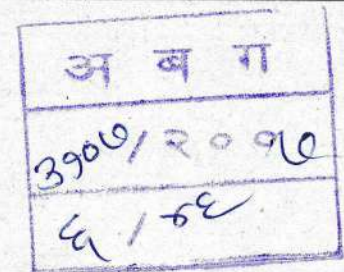 अ ब ग
३१०७/२०१७
६ /